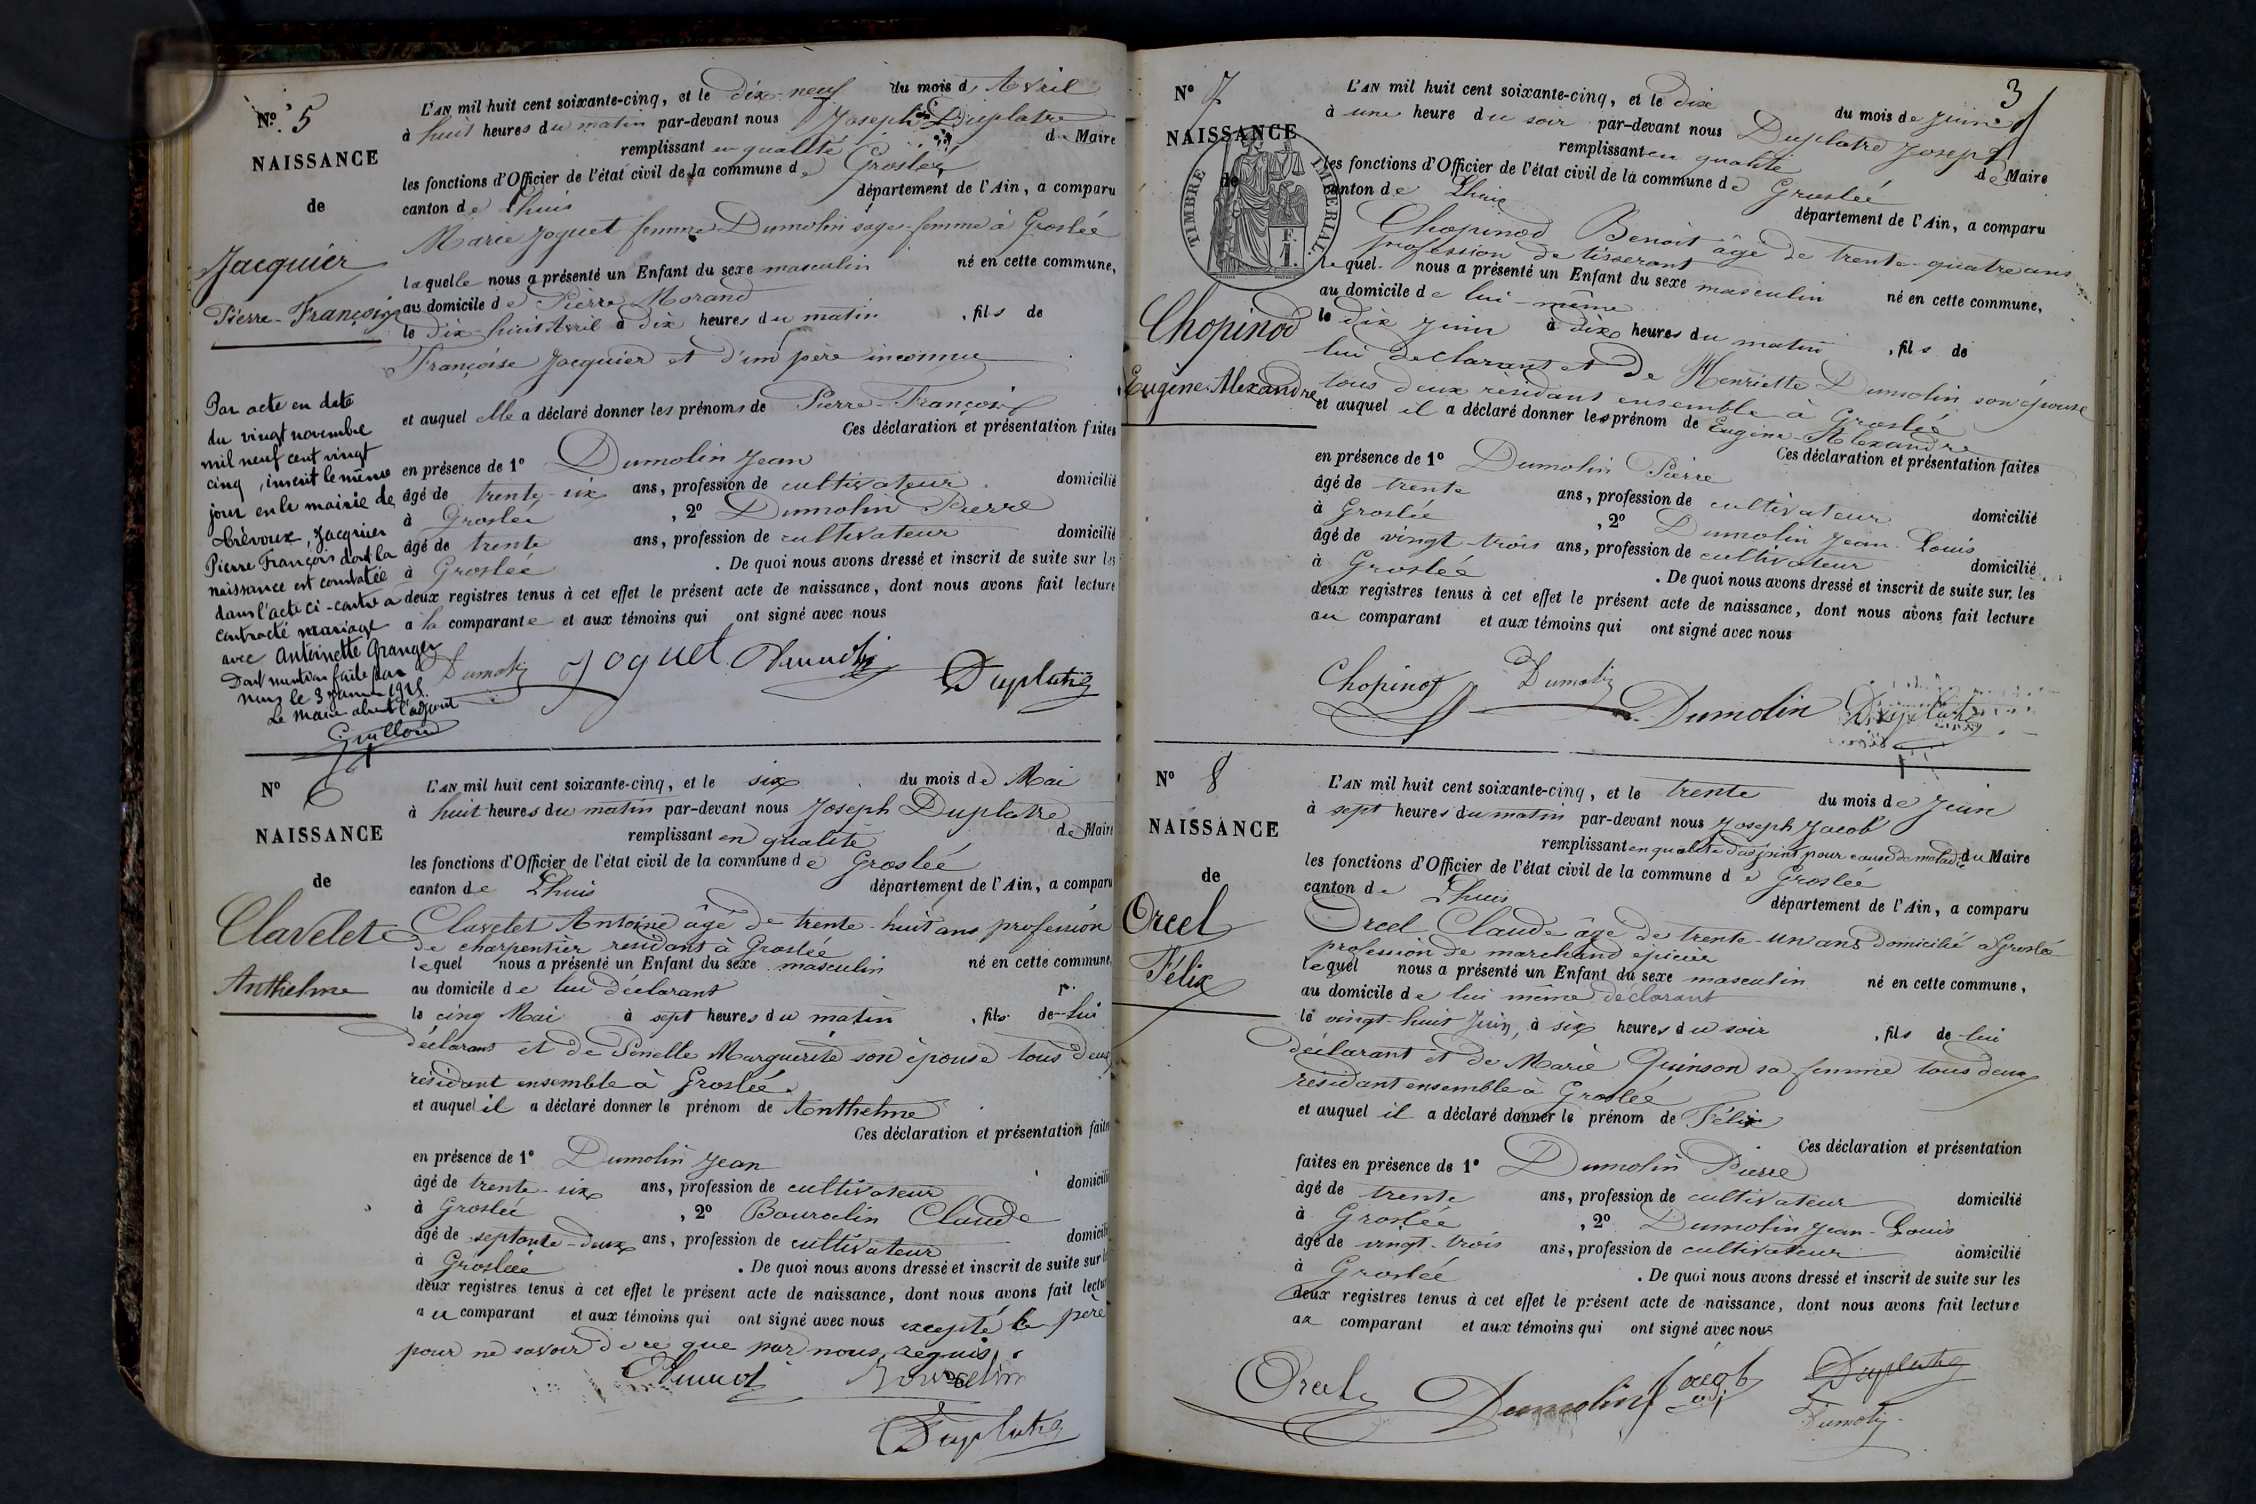 Nº 5
NAISSANCE
de
Jacquier
Pierre-François
Par acte en date
du vingt novembre
mil neuf cent vingt
cinq, inscrit le même
jour en la mairie de
Trévoux, Jacquier
Pierre François dont la
naissance est constatée
dans l'acte ci-contre a
contracté mariage
avec Antoinette Granger
Dont mention faite par
nous le 3
Le Maire absent l'adjoint
Guillon
L'AN mil huit cent soixante-cinq, et le dix-neuf du mois d'Avril
à huit heures du matin par-devant nous Joseph Duplatre
remplissant en qualité de Maire
les fonctions d'Officier de l'état civil de la commune de Groslée
canton de Lhuis département de l'Ain, a comparu
Marie Joguet femme Dumolin sage-femme à Groslée
laquelle nous a présenté un Enfant du sexe masculin né en cette commune,
au domicile de Pierre Morand
le dix-huit Avril à dix heures du matin, fils de
Françoise Jacquier et d'un père inconnu
et auquel elle a déclaré donner les prénoms de Pierre-François
Ces déclaration et présentation faites
en présence de 1º Dumolin Jean
âgé de trente-six ans, profession de cultivateur domicilié
à Groslée, 2º Dumolin Pierre
âgé de trente ans, profession de cultivateur domicilié
à Groslée. De quoi nous avons dressé et inscrit de suite sur les
deux registres tenus à cet effet le présent acte de naissance, dont nous avons fait lecture
a la comparante et aux témoins qui ont signé avec nous
Dumolin Joguet Dumolin Duplatre
Nº 6
NAISSANCE
de
Clavelet
Anthelme
L'AN mil huit cent soixante-cinq, et le six du mois de Mai
à huit heures du matin par-devant nous Joseph Duplatre
remplissant en qualité de Maire
les fonctions d'Officier de l'état civil de la commune de Groslée
canton de Lhuis département de l'Ain, a comparu
Clavelet Antoine âgé de trente-huit ans profession
de charpentier residant à Groslée
lequel nous a présenté un Enfant du sexe masculin né en cette commune,
au domicile de lui déclarant
le cinq Mai à sept heures du matin, fils de lui
déclarant et de Penelle Marguerite son épouse tous deux
résidant ensemble à Groslée
et auquel il a déclaré donner le prénom de Anthelme
Ces déclaration et présentation faites
en présence de 1º Dumolin Jean
âgé de trente-six ans, profession de cultivateur domicilié
à Groslée, 2º Bourcelin Claude
âgé de septante-deux ans, profession de cultivateur domicilié
à Groslée. De quoi nous avons dressé et inscrit de suite sur les
deux registres tenus à cet effet le présent acte de naissance, dont nous avons fait lecture
au comparant et aux témoins qui ont signé avec nous excepté le père
pour ne savoir de ce que par nous requis.
Dumolin Bourcelin
Duplatre
3
Nº 7
NAISSANCE
de
TIMBRE IMPÉRIAL
F.
1.
Chopinod
Eugène-Alexandre
L'AN mil huit cent soixante-cinq, et le dix du mois de Juin
à une heure du soir par-devant nous Duplatre Joseph
remplissant en qualité de Maire
les fonctions d'Officier de l'état civil de la commune de Groslée
canton de Lhuis département de l'Ain, a comparu
Chopinod Benoit âgé de trente-quatre ans
profession de tisserant
lequel nous a présenté un Enfant du sexe masculin né en cette commune,
au domicile de lui-même
le dix Juin à dix heures du matin, fils de
lui déclarant et de Henriette Dumolin son épouse
tous deux résidant ensemble à Groslée
et auquel il a déclaré donner les prénom de Eugène-Alexandre
Ces déclaration et présentation faites
en présence de 1º Dumolin Pierre
âgé de trente ans, profession de cultivateur domicilié
à Groslée, 2º Dumolin Jean-Louis
âgé de vingt-trois ans, profession de cultivateur domicilié
à Groslée. De quoi nous avons dressé et inscrit de suite sur les
deux registres tenus à cet effet le présent acte de naissance, dont nous avons fait lecture
au comparant et aux témoins qui ont signé avec nous
Chopinod Dumolin Dumolin Duplatre
Nº 8
NAISSANCE
de
Orcel
Félix
L'AN mil huit cent soixante-cinq, et le trente du mois de Juin
à sept heures du matin par-devant nous Joseph Jacob
remplissant en qualité d'adjoint pour cause de maladie du Maire
les fonctions d'Officier de l'état civil de la commune de Groslée
canton de Lhuis département de l'Ain, a comparu
Orcel Claude âgé de trente-un ans domicilié à Groslée
profession de marchand épicier
lequel nous a présenté un Enfant du sexe masculin né en cette commune,
au domicile de lui même déclarant
le vingt-huit Juin, à six heures du soir, fils de lui
déclarant et de Marie Quinson sa femme tous deux
résidant ensemble à Groslée
et auquel il a déclaré donner le prénom de Félix
Ces déclaration et présentation
faites en présence de 1º Dumolin Pierre
âgé de trente ans, profession de cultivateur domicilié
à Groslée, 2º Dumolin Jean-Louis
âgé de vingt-trois ans, profession de cultivateur domicilié
à Groslée. De quoi nous avons dressé et inscrit de suite sur les
deux registres tenus à cet effet le présent acte de naissance, dont nous avons fait lecture
au comparant et aux témoins qui ont signé avec nous
Orcel Dumolin Jacob adj Duplatre
Dumolin